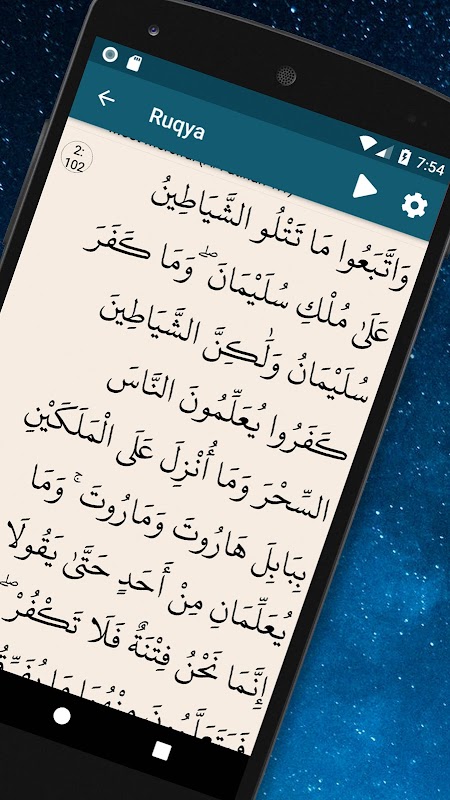 7:54
Ruqya
2:
102
وَاتَّبَعُوا مَا تَتْلُو الشَّيَاطِينُ
عَلَىٰ مُلْكِ سُلَيْمَانَ ۖ وَمَا كَفَرَ
سُلَيْمَانُ وَلَٰكِنَّ الشَّيَاطِينَ
كَفَرُوا يُعَلِّمُونَ النَّاسَ
السِّحْرَ وَمَا أُنْزِلَ عَلَى الْمَلَكَيْنِ
بِبَابِلَ هَارُوتَ وَمَارُوتَ ۚ وَمَا
يُعَلِّمَانِ مِنْ أَحَدٍ حَتَّىٰ يَقُولَا
إِنَّمَا نَحْنُ فِتْنَةٌ فَلَا تَكْفُرْ ۖ